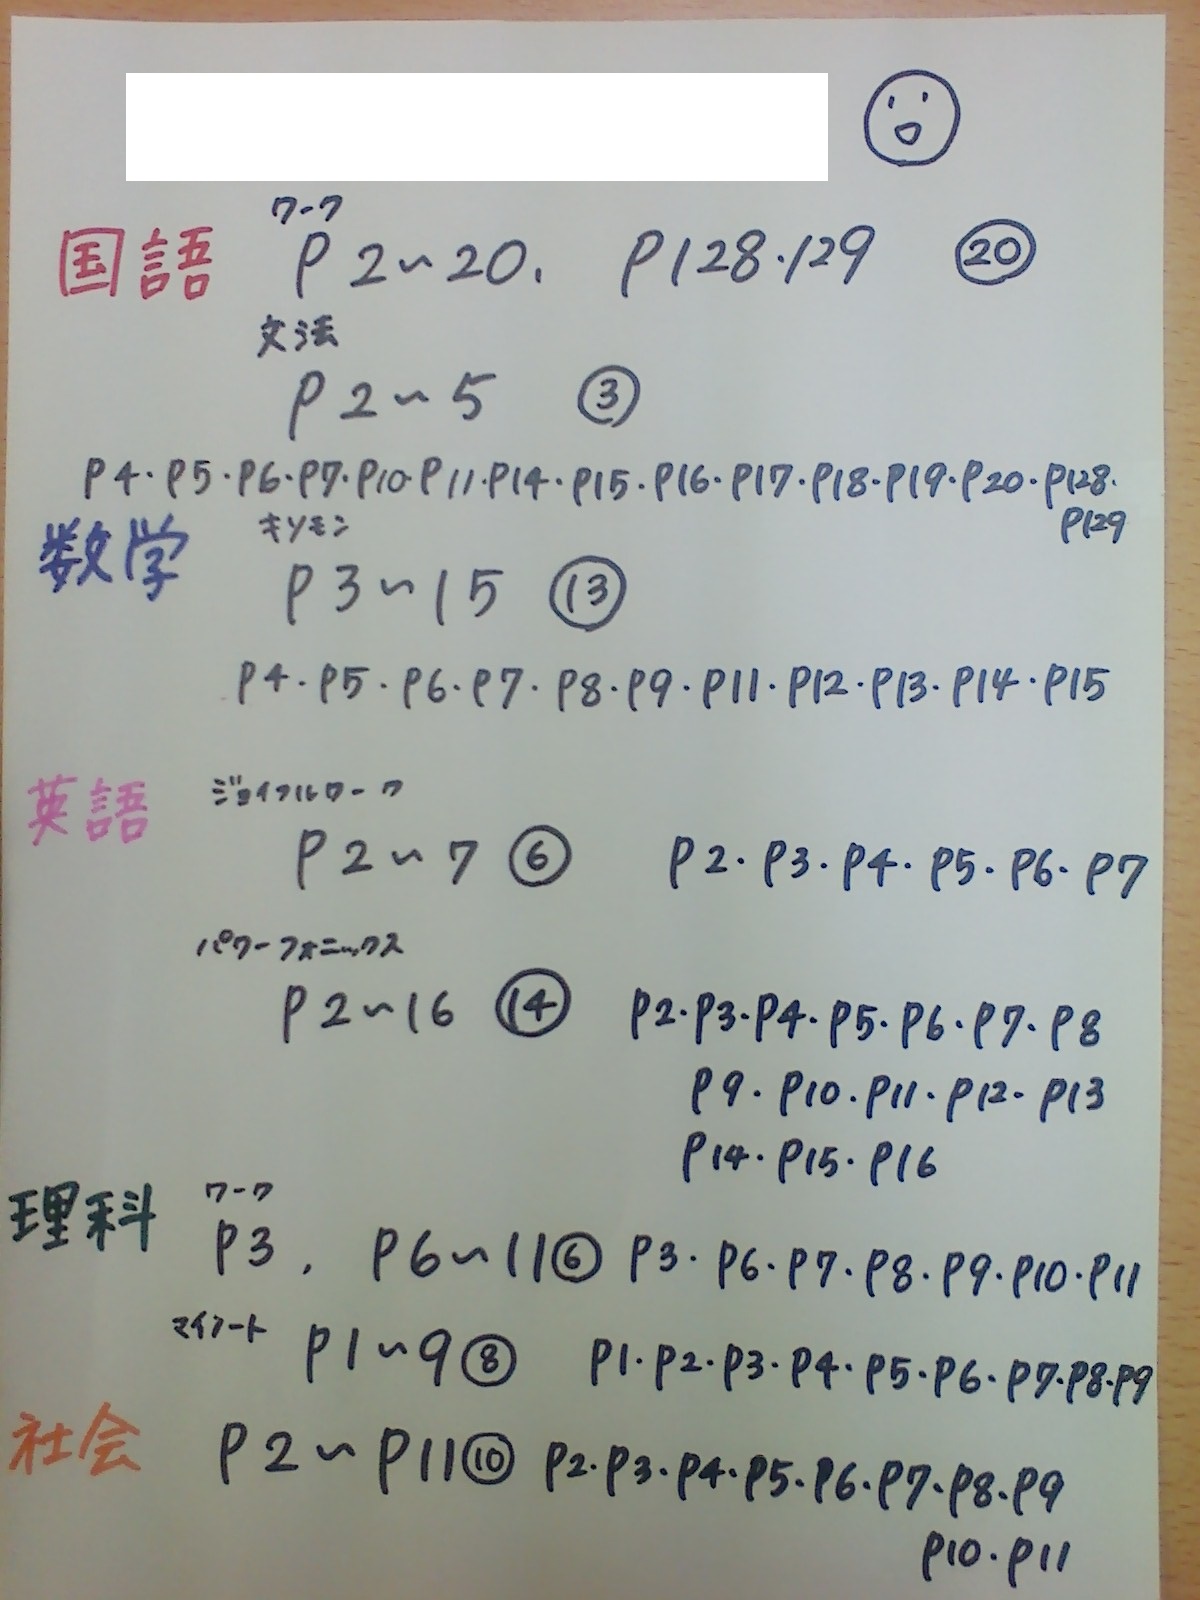 ワーク
国語 P2~20. P128・129 ⑳
文法
P2~5 ③
P4・P5・P6・P7・P10・P11・P14・P15・P16・P17・P18・P19・P20・P128・
P129
数学 キソモン
P3~15 ⑬
P4・P5・P6・P7・P8・P9・P11・P12・P13・P14・P15
英語 ジョイフルワーク
P2~7 ⑥ P2・P3・P4・P5・P6・P7
パワーフォニックス
P2~16 ⑭ P2・P3・P4・P5・P6・P7・P8
P9・P10・P11・P12・P13
P14・P15・P16
ワーク
理科 P3. P6~11 ⑥ P3・P6・P7・P8・P9・P10・P11
マイノート P1~9 ⑧ P1・P2・P3・P4・P5・P6・P7・P8・P9
社会 P2~P11 ⑩ P2・P3・P4・P5・P6・P7・P8・P9
P10・P11